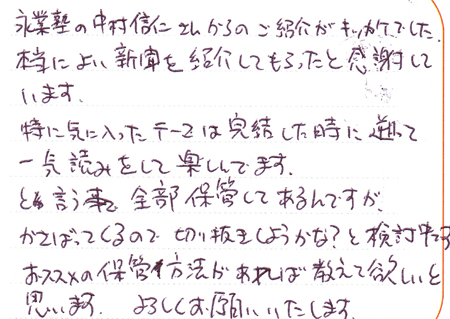 永業塾の中村信仁さんからのご紹介がキッカケでした。
本当によい新聞を紹介してもらったと感謝して
います。
特に気に入ったテーマは完結した時に遡って
一気読みをして楽しんでます。
と言う事で全部保管してあるんですが、
かさばってくるので切り抜きしようかな?と検討中です
おススメの保管方法があれば教えて欲しいと
思います。 よろしくお願いいたします。